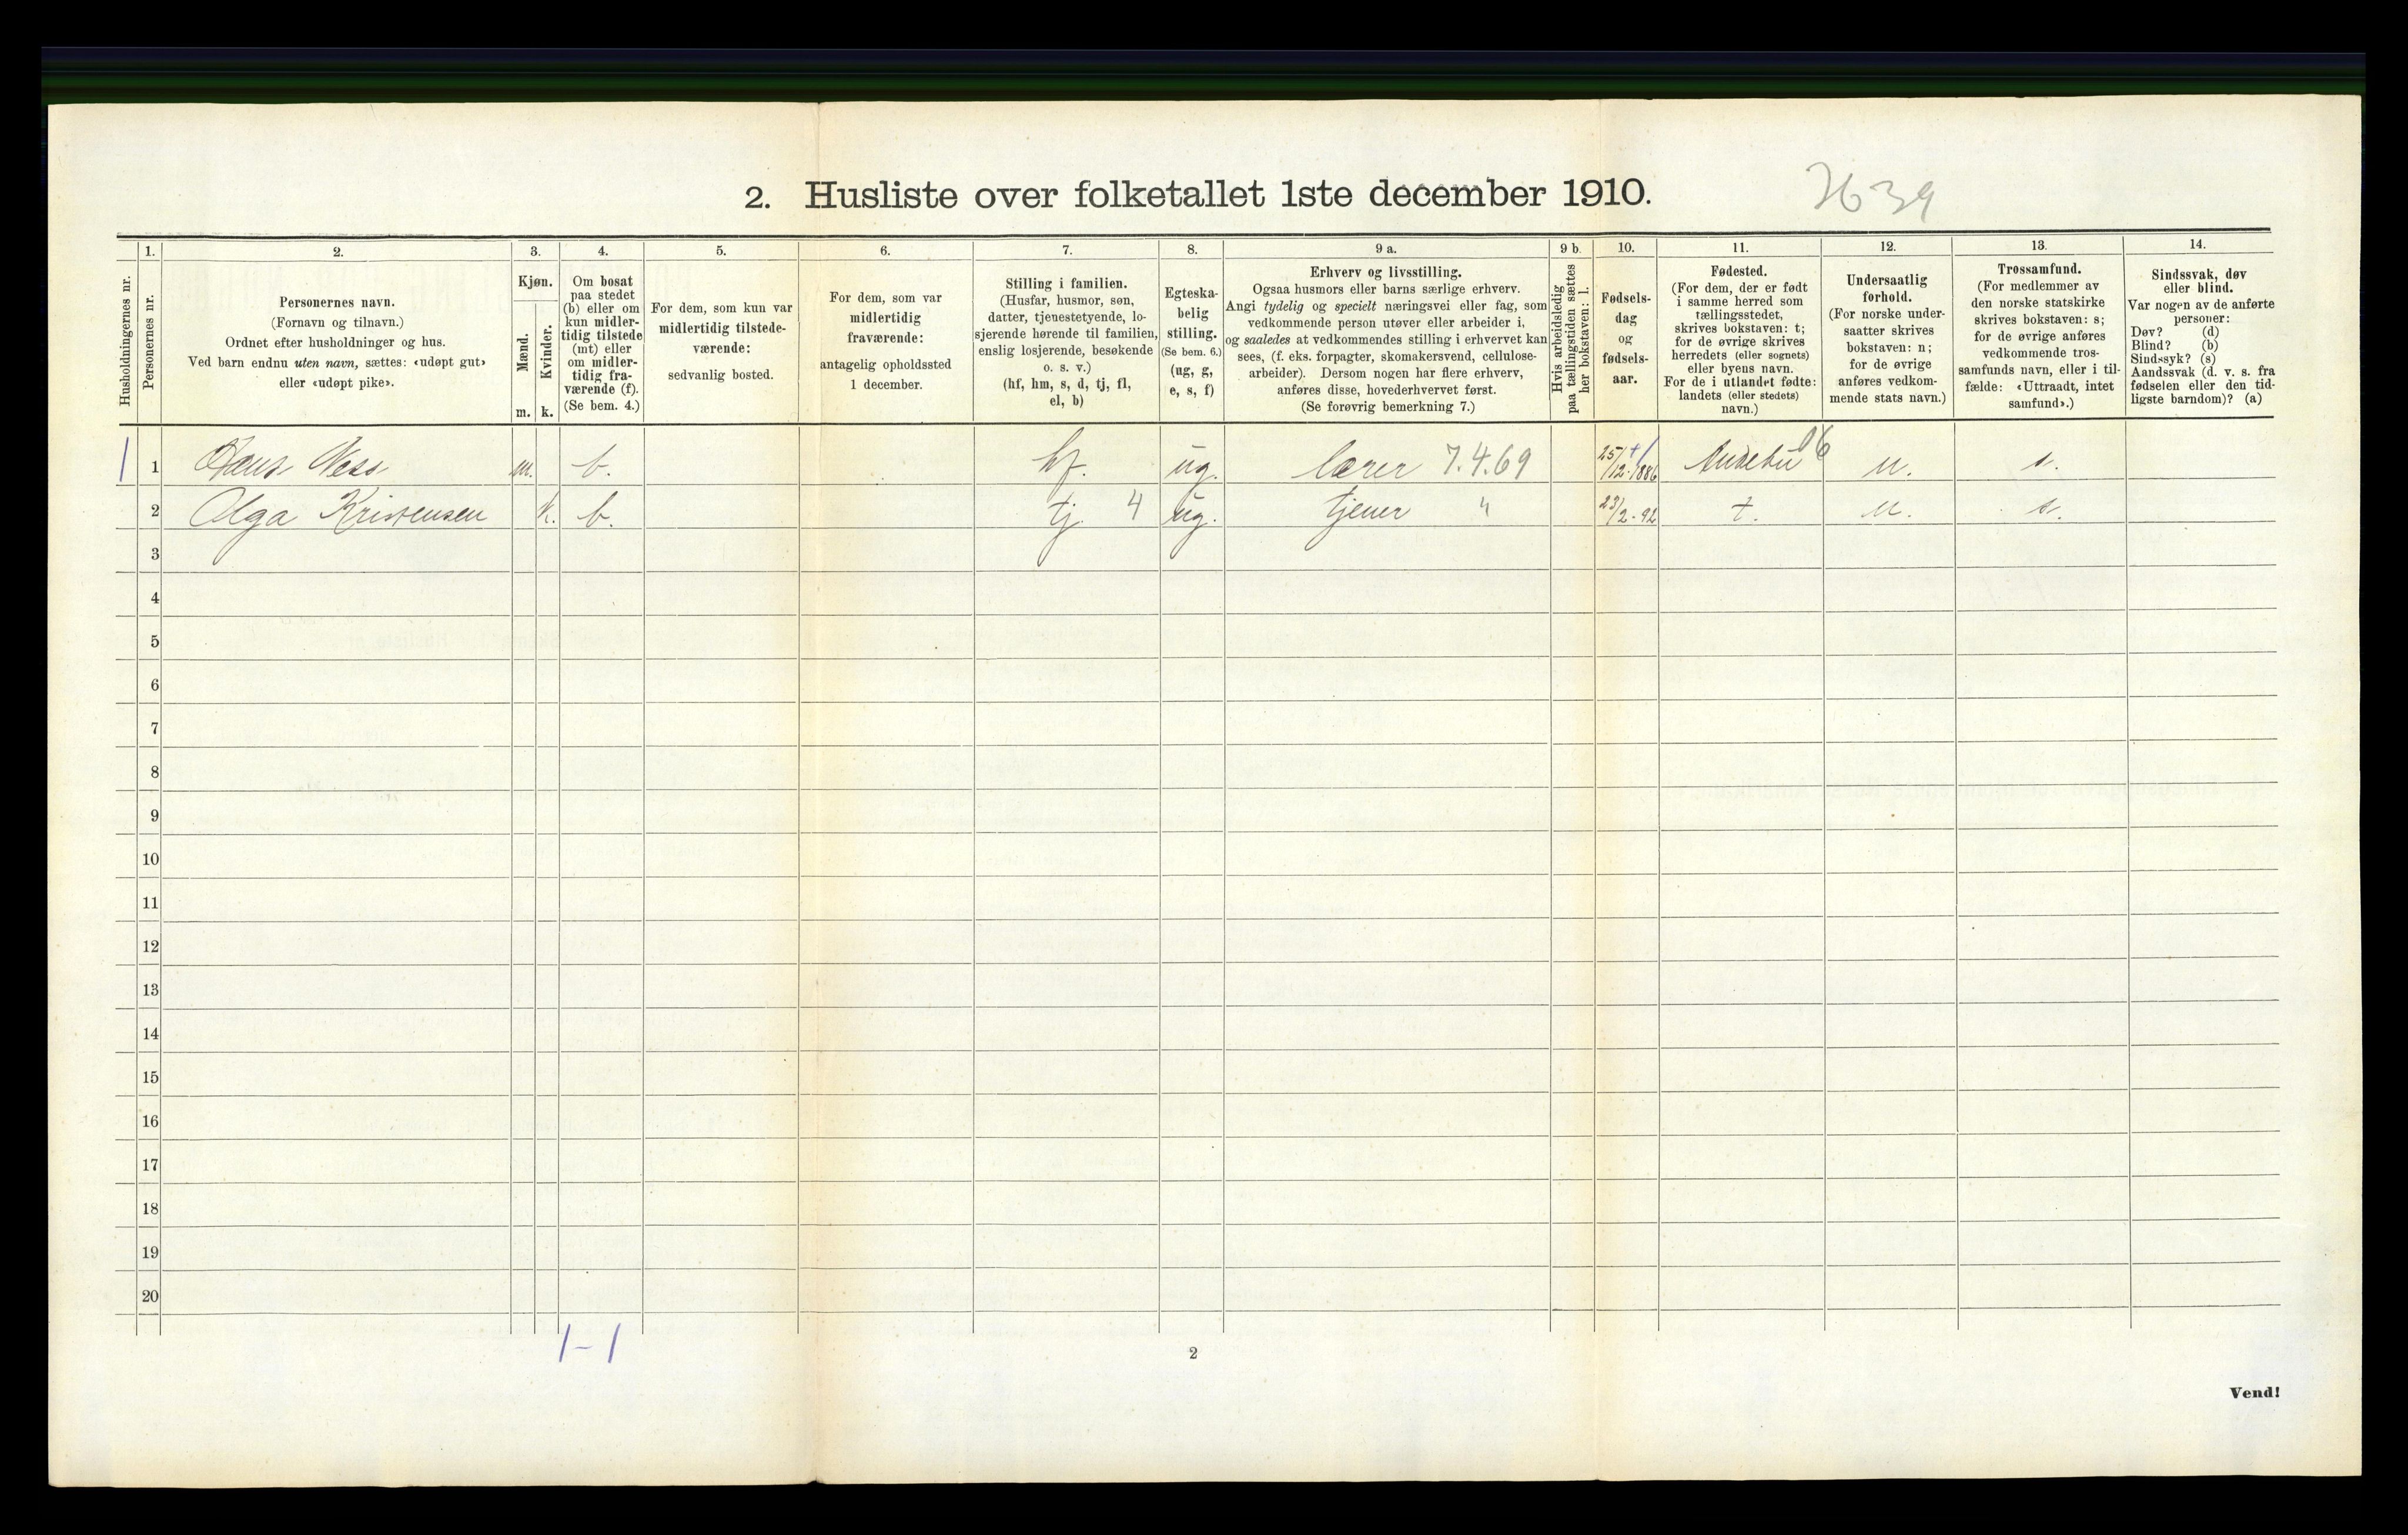 2. Husliste over folketallet 1ste december 1910.
7639
Husholdningernes nr.
1.
Personernes nr.
2.
Personernes navn.
(Fornavn og tilnavn.)
Ordnet efter husholdninger og hus.
Ved barn endnu uten navn, sættes: «udøpt gut»
eller «udøpt pike».
3.
Kjøn.
Mænd.
Kvinder.
m. k.
4.
Om bosat
paa stedet
(b) eller om
kun midler-
tidig tilstede
(mt) eller
om midler-
tidig fra-
værende (f).
(Se bem. 4.)
5.
For dem, som kun var
midlertidig tilstede-
værende:
sedvanlig bosted.
6.
For dem, som var
midlertidig
fraværende:
antagelig opholdssted
1 december.
7.
Stilling i familien.
(Husfar, husmor, søn,
datter, tjenestetyende, lo-
sjerende hørende til familien,
enslig losjerende, besøkende
o. s. v.)
(hf, hm, s, d, tj, fl,
el, b)
8.
Egteska-
belig
stilling.
(Se bem. 6.)
(ug, g,
e, s, f)
9 a.
Erhverv og livsstilling.
Ogsaa husmors eller barns særlige erhverv.
Angi tydelig og specielt næringsvei eller fag, som
vedkommende person utøver eller arbeider i,
og saaledes at vedkommendes stilling i erhvervet kan
sees, (f. eks. forpagter, skomakersvend, cellulose-
arbeider). Dersom nogen har flere erhverv,
anføres disse, hovederhvervet først.
(Se forøvrig bemerkning 7.)
9 b.
Hvis arbeidsledig
paa tællingstiden sættes
her bokstaven: l.
10.
Fødsels-
dag
og
fødsels-
aar.
11.
Fødested.
(For dem, der er født
i samme herred som
tællingsstedet,
skrives bokstaven: t;
for de øvrige skrives
herredets (eller sognets)
eller byens navn.
For de i utlandet fødte:
landets (eller stedets)
navn.)
12.
Undersaatlig
forhold.
(For norske under-
saatter skrives
bokstaven: n;
for de øvrige
anføres vedkom-
mende stats navn.)
13.
Trossamfund.
(For medlemmer av
den norske statskirke
skrives bokstaven: s;
for de øvrige anføres
vedkommende tros-
samfunds navn, eller i til-
fælde: «Uttraadt, intet
samfund».)
14.
Sindssvak, døv
eller blind.
Var nogen av de anførte
personer:
Døv? (d)
Blind? (b)
Sindssyk? (s)
Aandssvak (d. v. s. fra
fødselen eller den tid-
ligste barndom)? (a)
1 1 Hans Ness m. b. hf. ug. lærer 7.4.69 25/12-1886 Andebu 06 n. s.
2 Olga Kristensen k. b. tj. 4 ug. tjener " 23/2-92 t. n. s.
3
4
5
6
7
8
9
10
11
12
13
14
15
16
17
18
19
20
1-1
2
Vend!